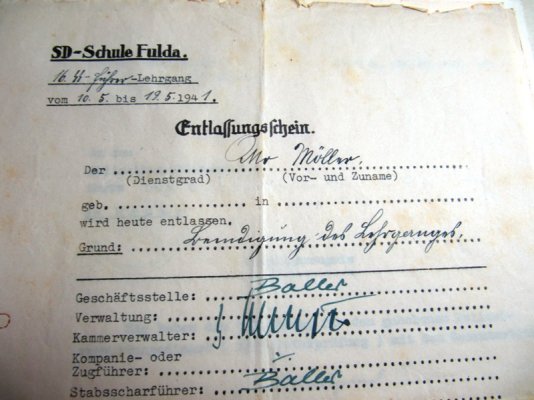 SD-Schule Fulda.
16. SS-Führer-Lehrgang
vom 10.5. bis 19.5.1941.
Entlassungsschein.
Der ........ Möller,
(Dienstgrad) (Vor- und Zuname)
geb. .................. in ..............................
wird heute entlassen.
Grund: Beendigung des Lehrganges.
Geschäftsstelle: Baller
Verwaltung:
Kammerverwalter:
Kompanie- oder
Zugführer:
Stabsscharführer: Baller